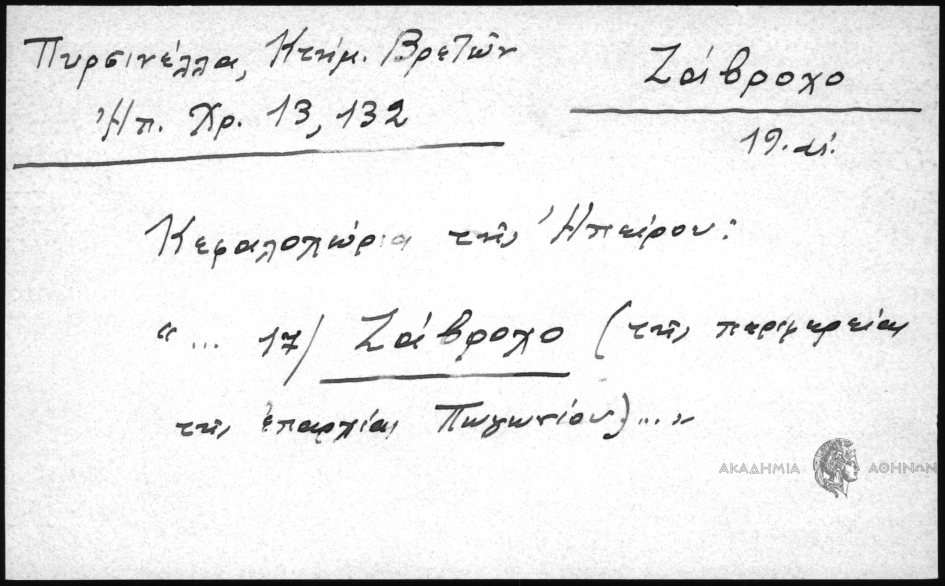 Πυρσινέλλα, Κτήμ. Βρετῶν
Ἠπ. Χρ. 13, 132
Ζάβροχο
19. αἰ.
Κεφαλοχώρια τῆς Ἠπείρου:
"... 17/ Ζάβροχο (τῆς περιφερείας
τῆς ἐπαρχίας Πωγωνίου)..."
ΑΚΑΔΗΜΙΑ ΑΘΗΝΩΝ